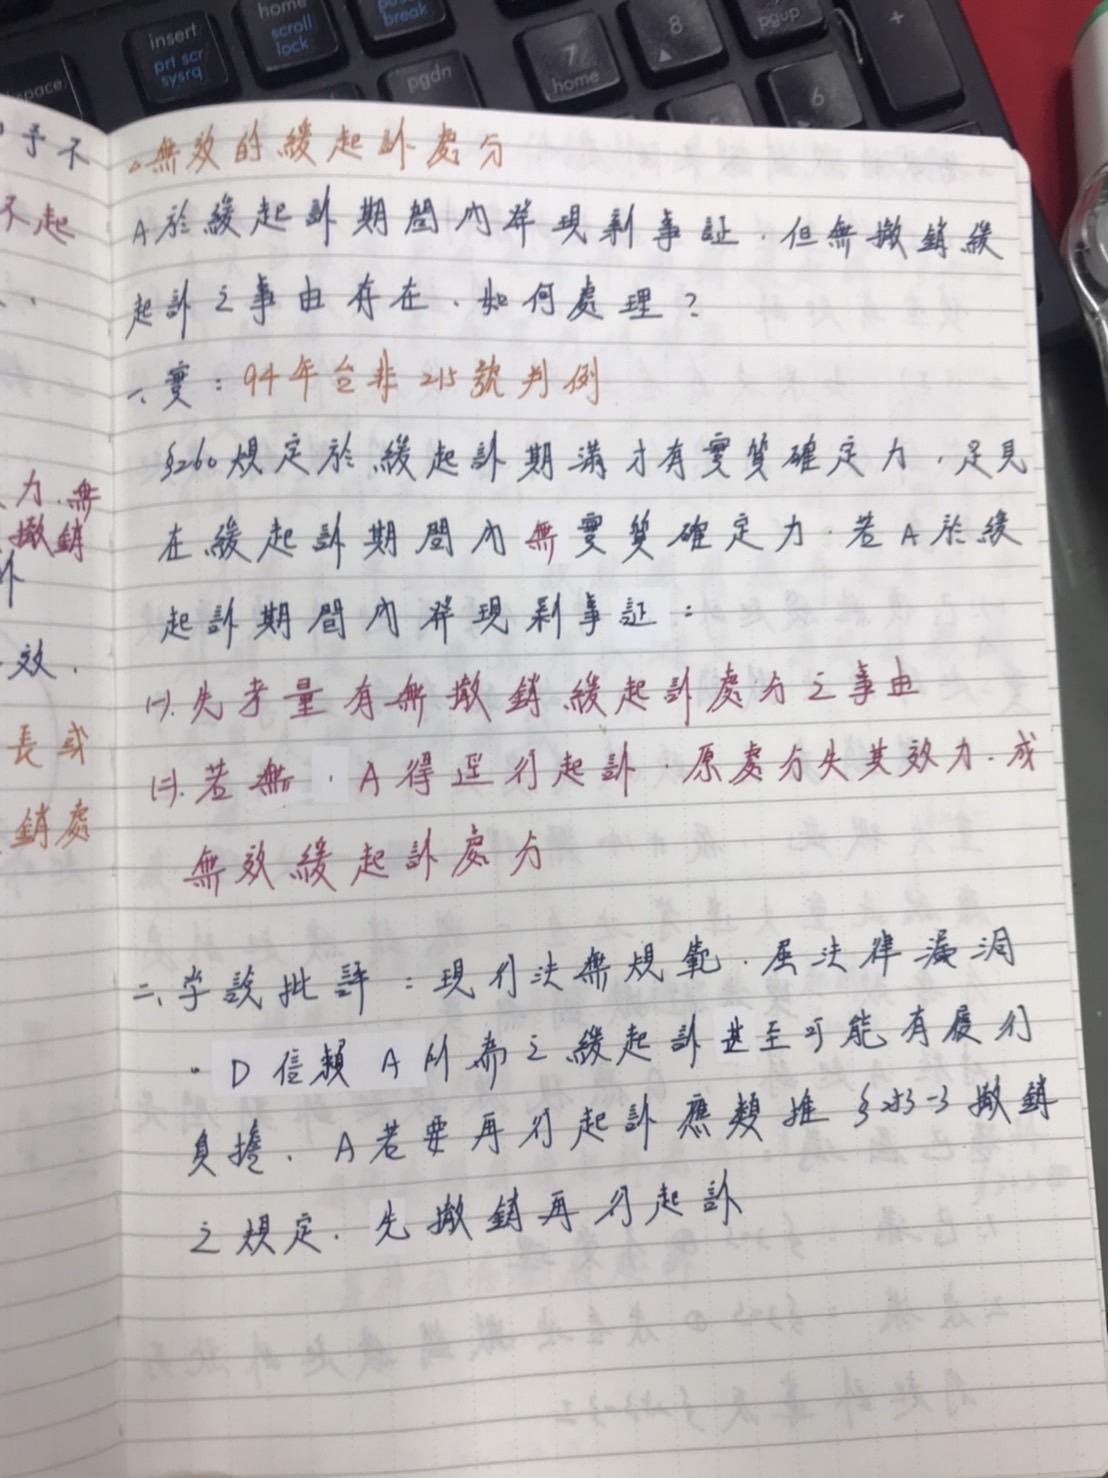 insert
prt scr
sysrq
home
scroll
lock
break
pgdn
7
home
8
pgup
6
+
予不
不起
力.無
撤銷
效.
長或
銷處
△無效的緩起訴處分
A於緩起訴期間內發現新事証.但無撤銷緩
起訴之事由存在.如何處理?
一、實:94年台非215號判例
§260規定於緩起訴期滿才有實質確定力.足見
在緩起訴期間內無實質確定力.若A於緩
起訴期間內發現新事証:
(一).先考量有無撤銷緩起訴處分之事由
(二).若無.A得逕行起訴.原處分失其效力.成
無效緩起訴處分
二、学說批評:現行法無規範.屬法律漏洞
。D信賴A所為之緩起訴甚至可能有履行
負擔.A若要再行起訴應類推§253-3撤銷
之規定.先撤銷再行起訴